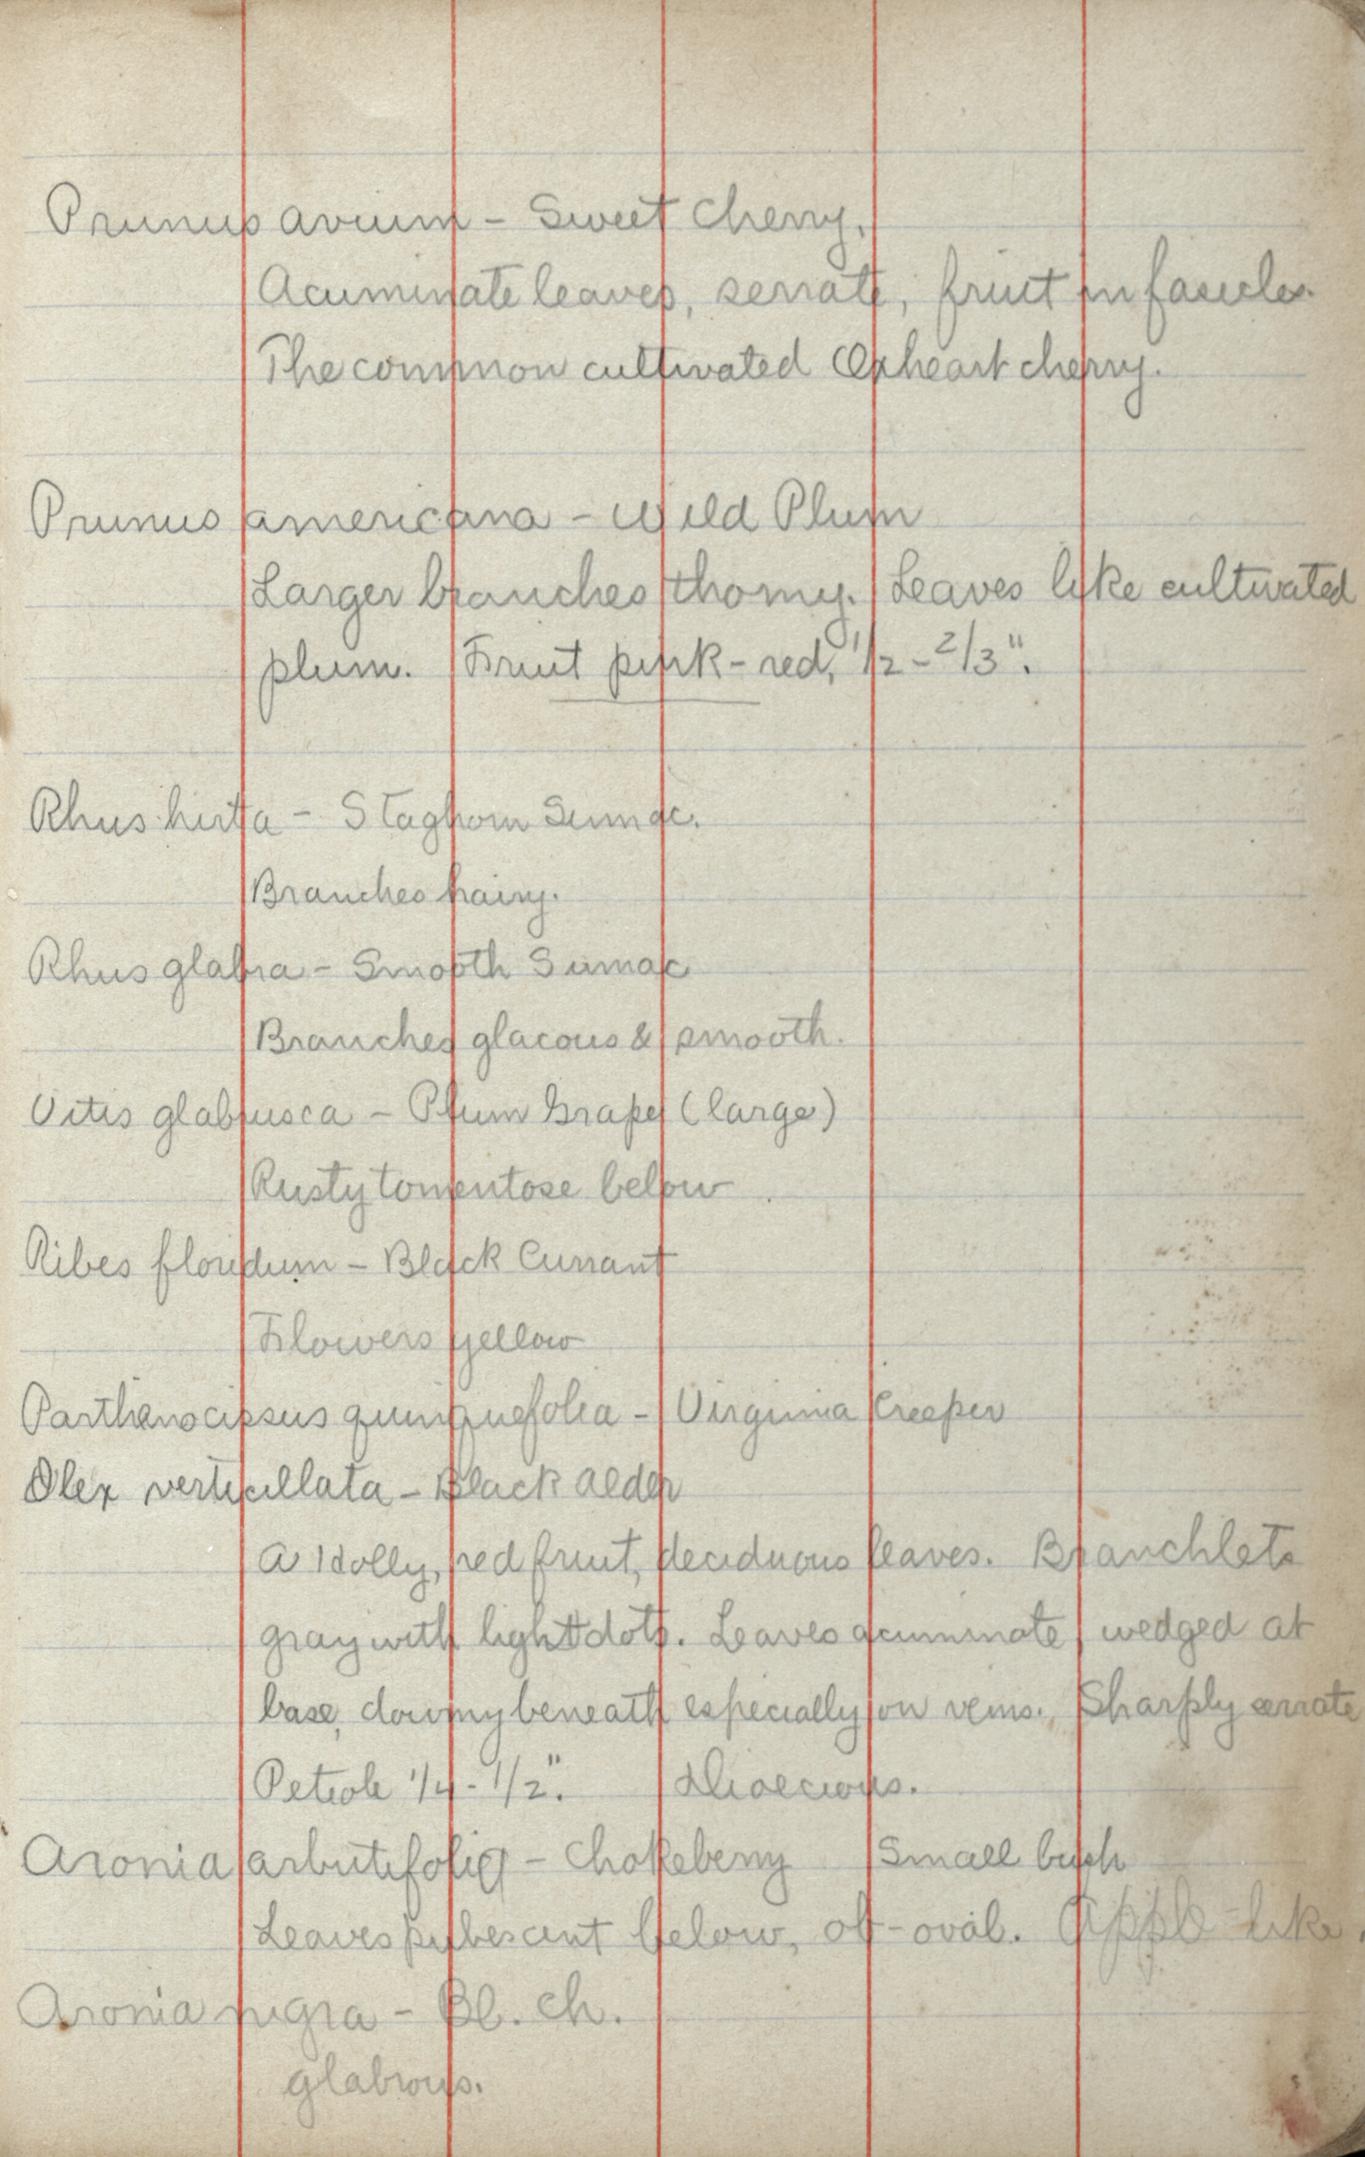 Prunus avium - Sweet Cherry.
Acuminate leaves, serrate, fruit in fasicles.
The common cultivated Oxheart cherry.
Prunus americana - Wild Plum
Larger branches thorny. Leaves like cultivated
plum. Fruit pink-red, 1/2 - 2/3".
Rhus hirta - Staghorn Sumac.
Branches hairy.
Rhus glabra - Smooth Sumac
Branches glacous & smooth.
Vitis glabrusca - Plum Grape (large)
Rusty tomentose below.
Ribes floridum - Black Currant
Flowers yellow
Parthenocissus quinquefolia - Virginia Creeper
Ilex verticillata - Black Alder
A Holly, red fruit, deciduous leaves. Branchlets
gray with light dots. Leaves acuminate, wedged at
base, downy beneath especially on veins. Sharply serrate
Petiole 1/4 - 1/2". Dioecious.
Aronia arbutifolia - Chokeberry Small bush
Leaves pubescent below, ob-oval. Apple-like.
Aronia nigra - Bl. Ch.
glabrous.